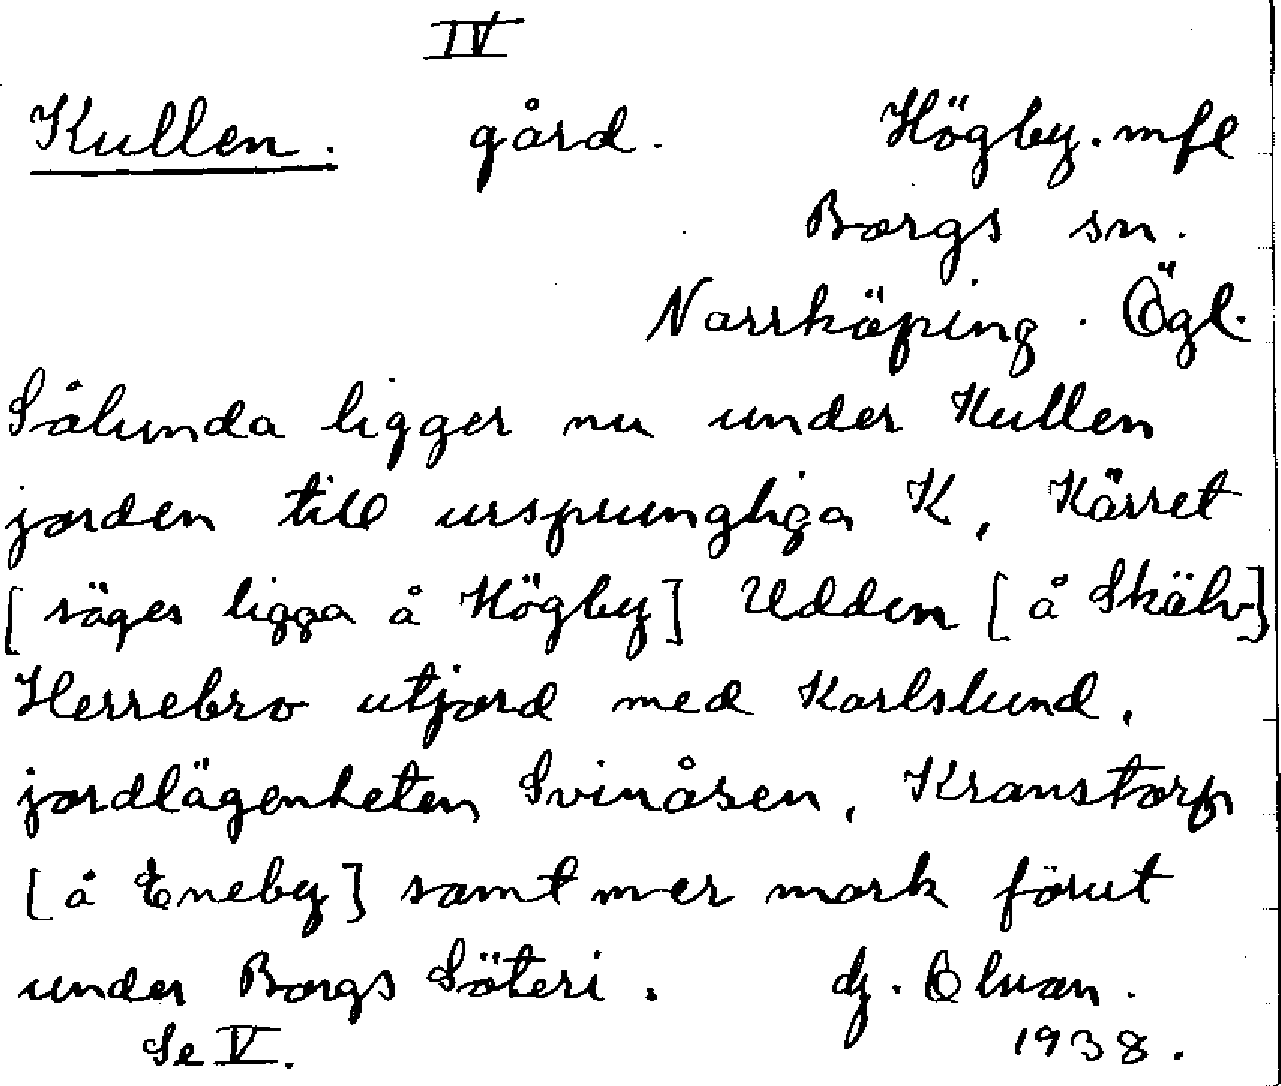 IV
Kullen. gård. Högby. mfl
Borgs sn.
Norrköping. Ögl.
Sålunda ligger nu under Kullen
jorden till ursprungliga K, Kärret
[säges ligga å Högby] Udden [å Skälv]
Herrebro utjord med Karlslund,
jordlägenheten Svinåsen, Kranstorp
[å Eneby] samt mer mark förut
under Borgs Säteri.
Se V. 1938.